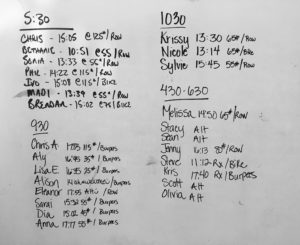 5:30
CHRIS - 15:05 @ 125#/ROW
10:51 @ 55#/ROW
SONIA - 13:33 @ 50#/ROW
PHIL - 14:22 @ 115#/ROW
- 15:08 @ 115#/BIKE
MADI - 13:34 @ 55#/ROW
BRENDAN - 15:02 @ 75/BIKE
930
Chris A. 17:05 115#/Burpees
Aly 16:45 35#/Burpees
Lisa E. 16:35 35#/Burpees
Alison
Eleanor 17:55 Alt/Row
Sarai 15:32 55#/Burpees
Dia 15:02 45#/Burpees
Anna 17:17 55#/Burpees
1030
Krissy 13:30 65#/Row
Nicole 13:14 65#/Bike
Sylvie 15:45 55#/Row
430-630
Melissa 14:50 65#/Row
Stacy Alt
Sean Alt
Jenny 16:13 85#/Row
Steve 11:12 Rx/Bike
Kris 17:40 Rx/Burpees
Scott Alt
Olivia Alt